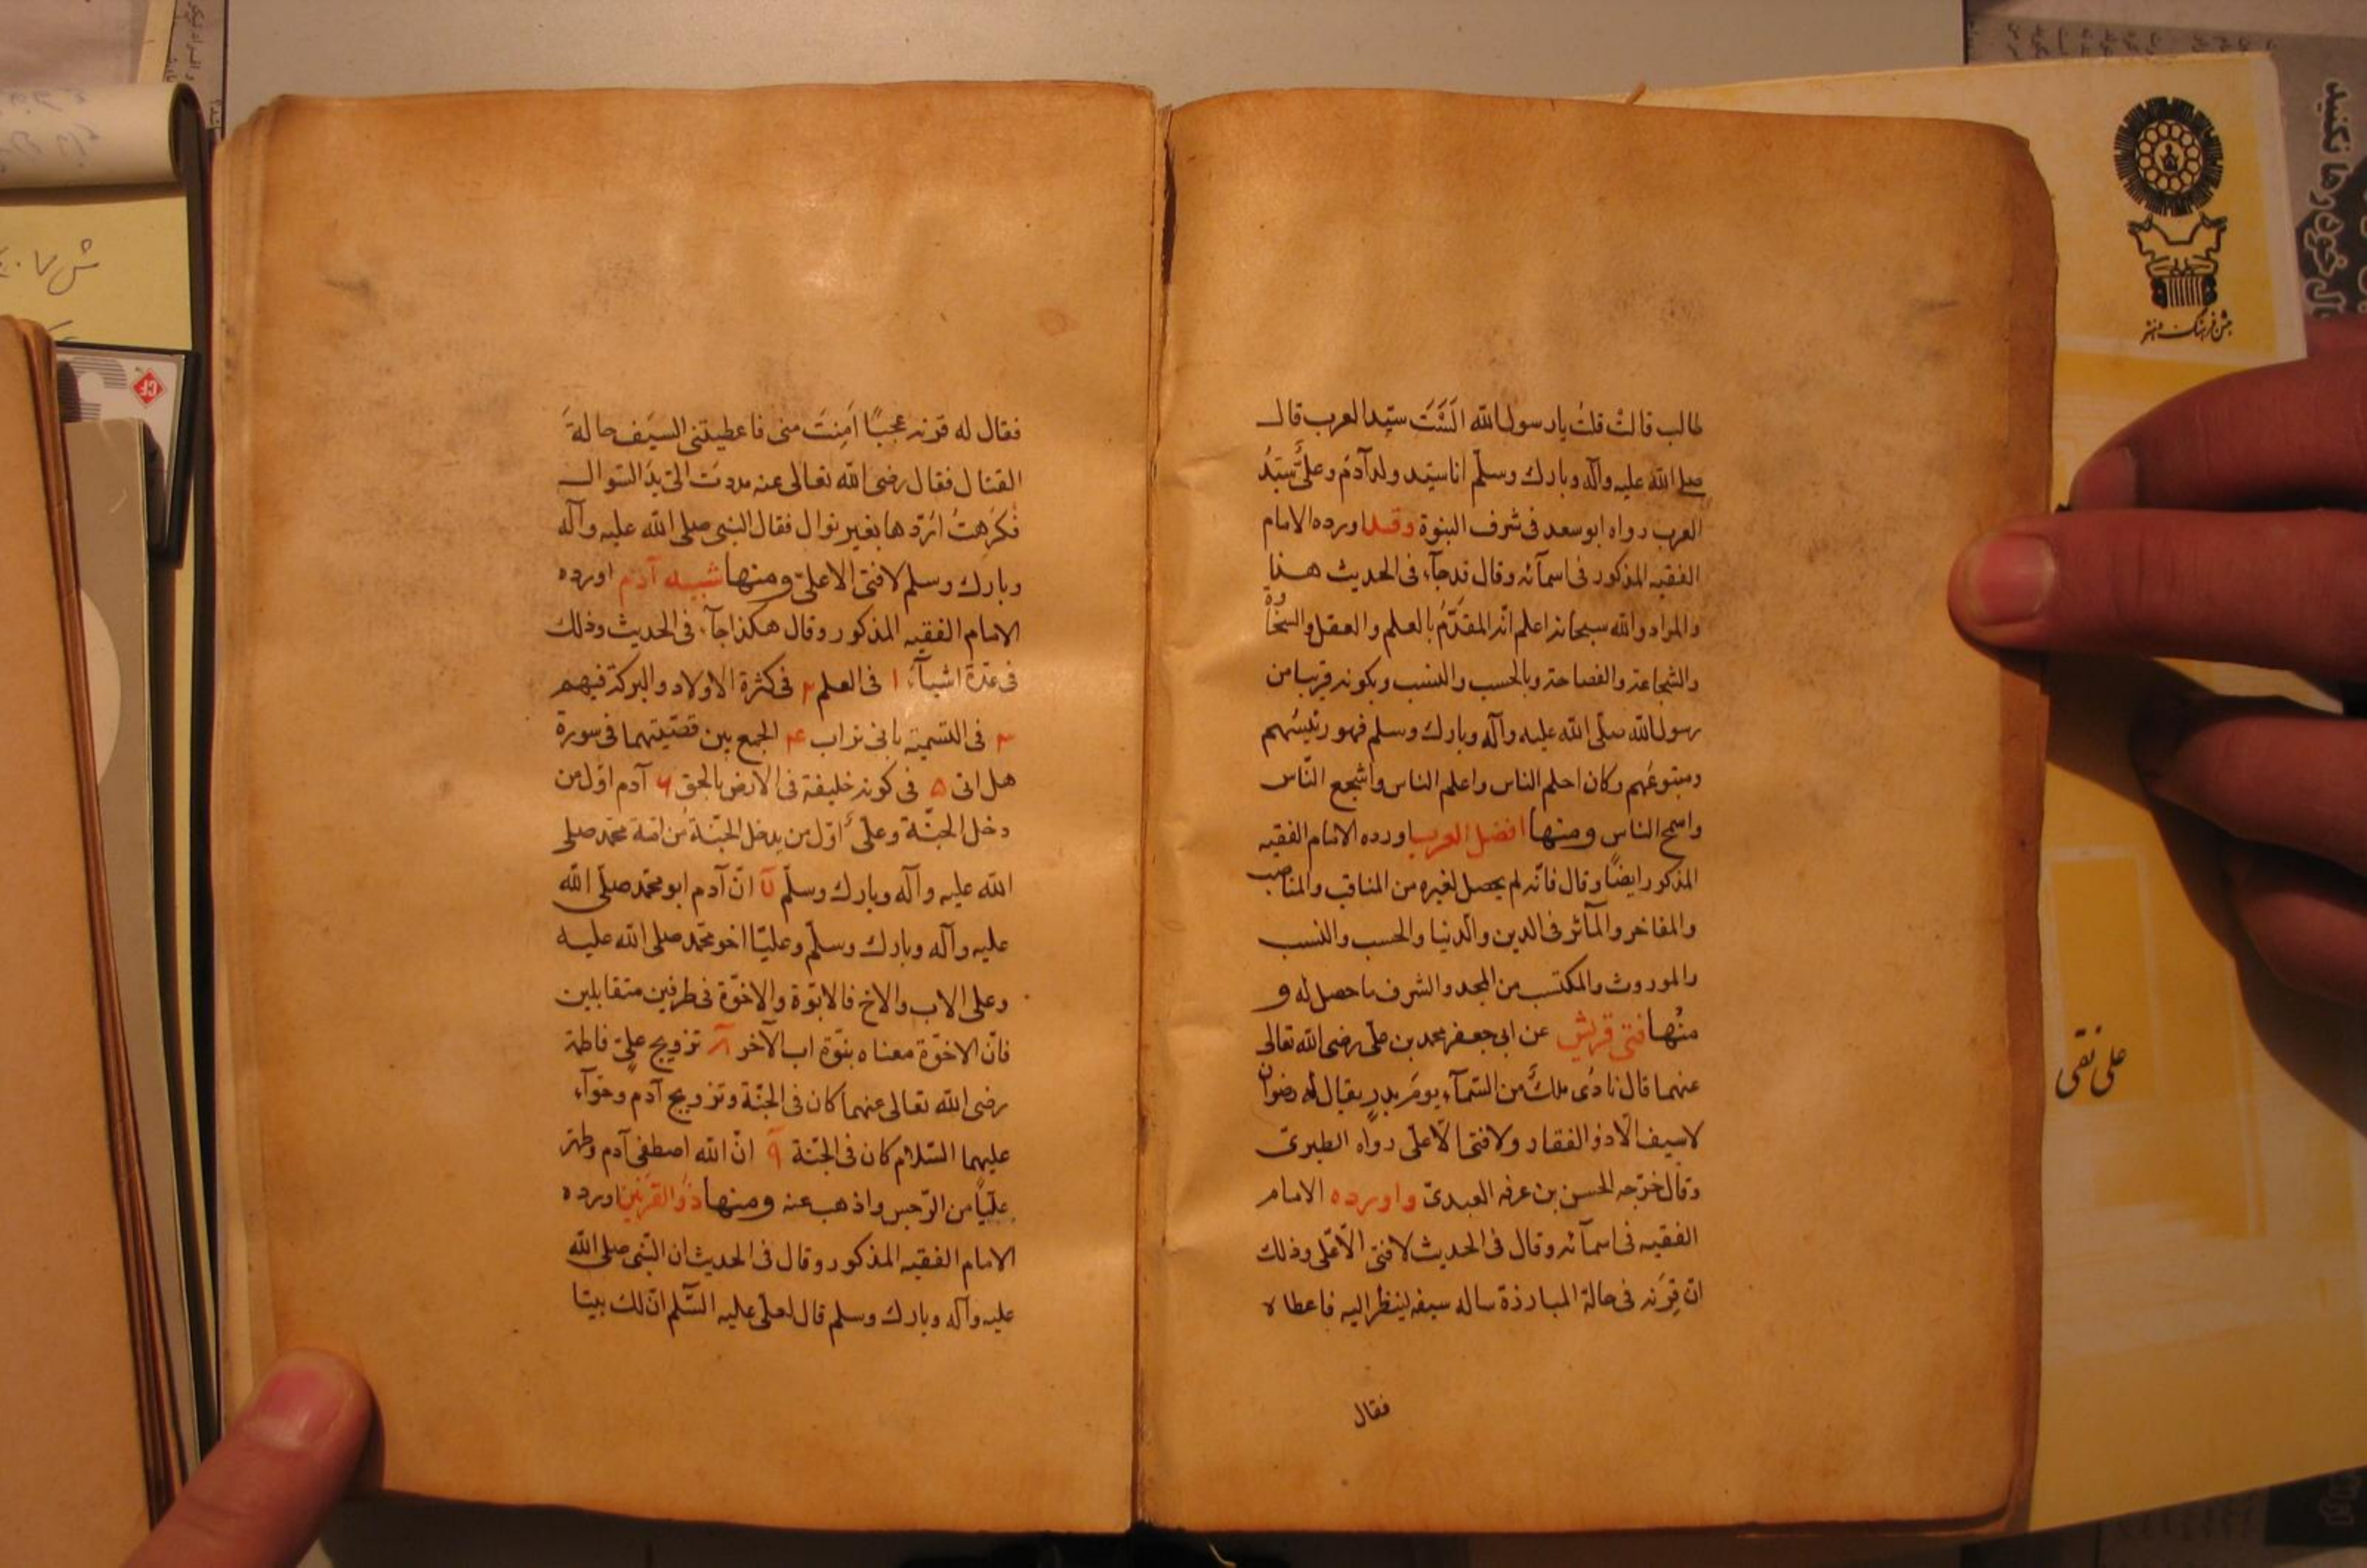 طالب قالت قلت يا رسول الله اَلَسْتَ سيّد العرب قال
صلى الله عليه وآله وبارك وسلّم انا سيّد ولد آدم وعلىٌّ سيّدُ
العرب رواه ابو سعد فى شرف النبوة وقد اورده الامام
الفقيه المذكور فى اسمآئه وقال قد جآء فى الحديث هـذا
والمراد والله سبحانه اعلم انّه المقدَّمُ بالعلم والعقل والسخاوة
والشجاعة والفصاحة وبالحسب والنسب وبكونه قريبا من
رسول الله صلّى الله عليه وآله وبارك وسلم فهو رئيسهم
ومتبوعهم وكان احلم الناس واعلم الناس واشجع النّاس
واسمح الناس ومنها افضل العرب اورده الامام الفقيه
المذكور ايضًا وقال فانّه لم يحصل لغيره من المناقب والمناصب
والمفاخر والمآثر فى الدين والدّنيا والحسب والنسب
والموروث والمكتسب من المجد والشرف ما حصل له و
منها فتى قريش عن ابى جعفر محمد بن على رضى الله تعالى
عنهما قال نادى ملكٌ من السّمآء يومَ بدرٍ يقال له رضوان
لا سيف الّا ذو الفقار ولا فتى الّا على رواه الطبرىّ
وقال خرّجه الحسن بن عرفه العبدىّ واورده الامام
الفقيه فى اسمآئه وقال فى الحديث لا فتى الّا على وذلك
انّ قِرنه فى حالة المبارزة ساله سيفه لينظر اليه فاعطاه
فقال
فقال له قرنه عجبًا اَمِنتَ منى فاعطيتنى السيف حالة
القتال فقال رضى الله تعالى عنه مددتَ الىّ يدَ السّوال
فكرهتُ ان اردّها بغير نوال فقال النبى صلى الله عليه وآله
وبارك وسلم لا فتى الا على ومنها شبيه آدم اورده
الامام الفقيه المذكور وقال هكذا جآء فى الحديث وذلك
فى عدّة اشيآء ١ فى العلم ٢ فى كثرة الاولاد والبركة فيهم
٣ فى التسمية بابى تراب ۴ الجمع بين قصّتيهما فى سورة
هل اتى ۵ فى كونه خليفة فى الارض بالحق ۶ آدم اوّل من
دخل الجنّة وعلىٌّ اوّل من يدخل الجنّة من امّة محمّد صلى
الله عليه وآله وبارك وسلّم ٧ انّ آدم ابو محمّد صلّى الله
عليه وآله وبارك وسلّم وعليّا اخو محمّد صلى الله عليه
وعلى الاب والاخ فالابوّة والاخوّة فى طرفين متقابلين
فانّ الاخوّة معناه بنوّة اب الآخر ٨ تزويج علىّ فاطمة
رضى الله تعالى عنهما كان فى الجنّة وتزويج آدم وحوّآء
عليهما السّلام كان فى الجنّة ٩ انّ الله اصطفى آدم وطهّر
عليّاً من الرّجس واذهب عنه ومنها ذو القرنين اورده
الامام الفقيه المذكور وقال فى الحديث ان النّبى صلى الله
عليه وآله وبارك وسلم قال لعلى عليه السّلم انّ لك بيتا
جشن فرهنگ و هنر
على نقى